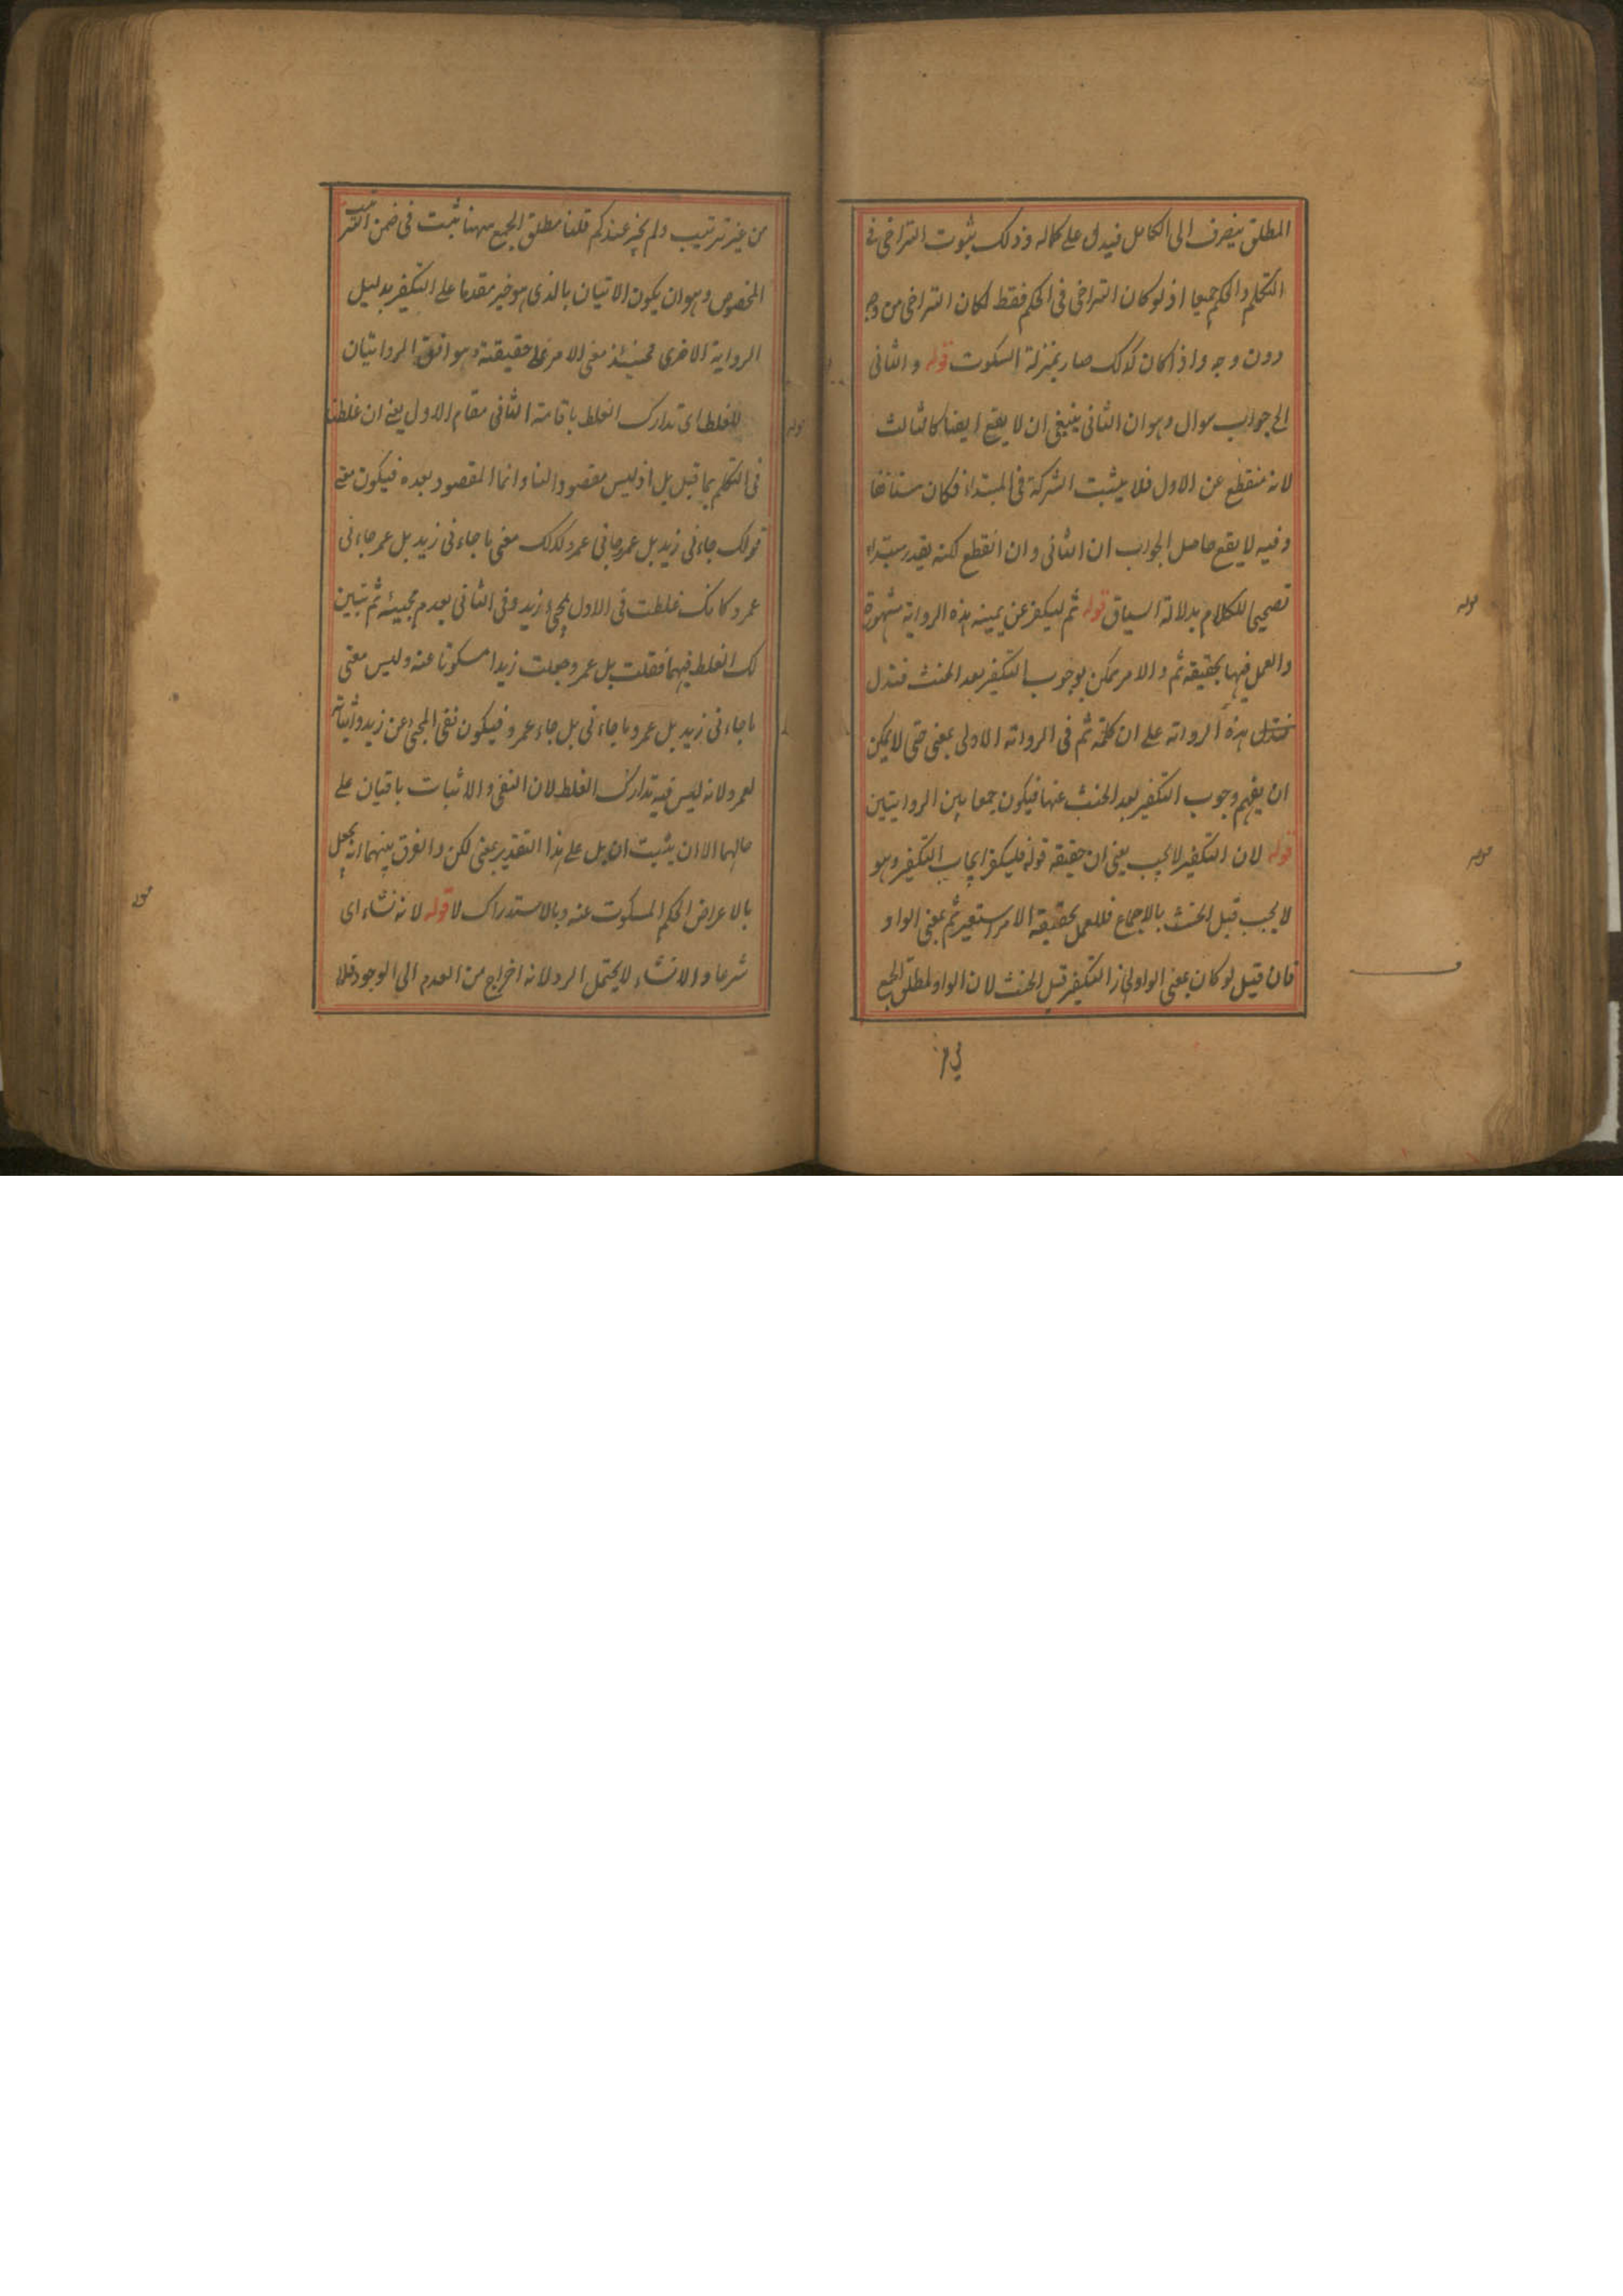 المطلق ينصرف الى الكامل فيدل على كماله وذلك بثبوت التراخى فى
التكلم والحكم جميعا اذ لو كان التراخى فى الحكم فقط لكان التراخى من وجه
دون وجه واذا كان كذلك صار بمنزلة السكوت قوله والثانى
الى جواب سوال وهو ان الثانى ينبغى ان لا يقع ايضا كالثالث
لانه منقطع عن الاول فلا يثبت الشركة فى المبتداء فكان مستانفا
وفيه لا يقع حاصل الجواب ان الثانى وان انقطع لكنه يقدر مبتداء
تصحيحا للكلام بدلالة السياق قوله ثم ليكفر عن يمينه هذه الرواية مشهورة
والعمل فيها بحقيقة ثم والامر ممكن بوجوب التكفير بعد الحنث فتدل
هذه الرواية على ان كلمة ثم فى الرواية الاولى بمعنى حتى لا يمكن
ان يفهم وجوب التكفير بعد الحنث عنها فيكون جمعا بين الروايتين
قوله لان التكفير لا يجب يعنى ان حقيقة قوله فليكفر ايجاب التكفير وهو
لا يجب قبل الحنث بالاجماع فللعمل بحقيقة الامر استعير ثم بمعنى الواو
فان قيل لو كان بمعنى الواو لجاز التكفير قبل الحنث لان الواو لمطلق الجمع
من غير ترتيب ولم يجز عندكم قلنا مطلق الجمع ههنا ثبت فى ضمن الترتيب
المخصوص وهو ان يكون الاتيان بالذى هو خير مقدما على التكفير بدليل
الرواية الاخرى فحينئذ معنى الامر على حقيقته وموافق الروايتان
للغلط اى تدارك الغلط باقامة الثانى مقام الاول يعنى ان غلطت
فى التكلم بما قبل بل اذ ليس مقصود النا وانما المقصود بعده فيكون معنى
قولك جاءنى زيد بل عمرو جانى عمرو كذلك معنى ما جاءنى زيد بل عمرو جاءنى
عمرو كانك غلطت فى الاول بمجئ زيد وفى الثانى بعدم مجيئه ثم تبين
لك الغلط فيهما فقلت بل عمرو جعلت زيدا مسكوتا عنه وليس معنى
ما جاءنى زيد بل عمرو ما جاءنى بل جاء عمرو فيكون نفى المجئ عن زيد واثباته
لعمرو لانه ليس فيه تدارك الغلط لان النفى والاثبات باقيان على
حالهما الا ان يثبت ان بل على هذا التقدير بمعنى لكن والفرق بينهما انه يجعل
بالاعراض الحكم المسكوت عنه وبالاستدراك لا قوله لانه انشاء اى
شرعا والانشاء لا يحتمل الرد لانه اخراج من العدم الى الوجود فلا
قوله
قوله
قوله
قوله